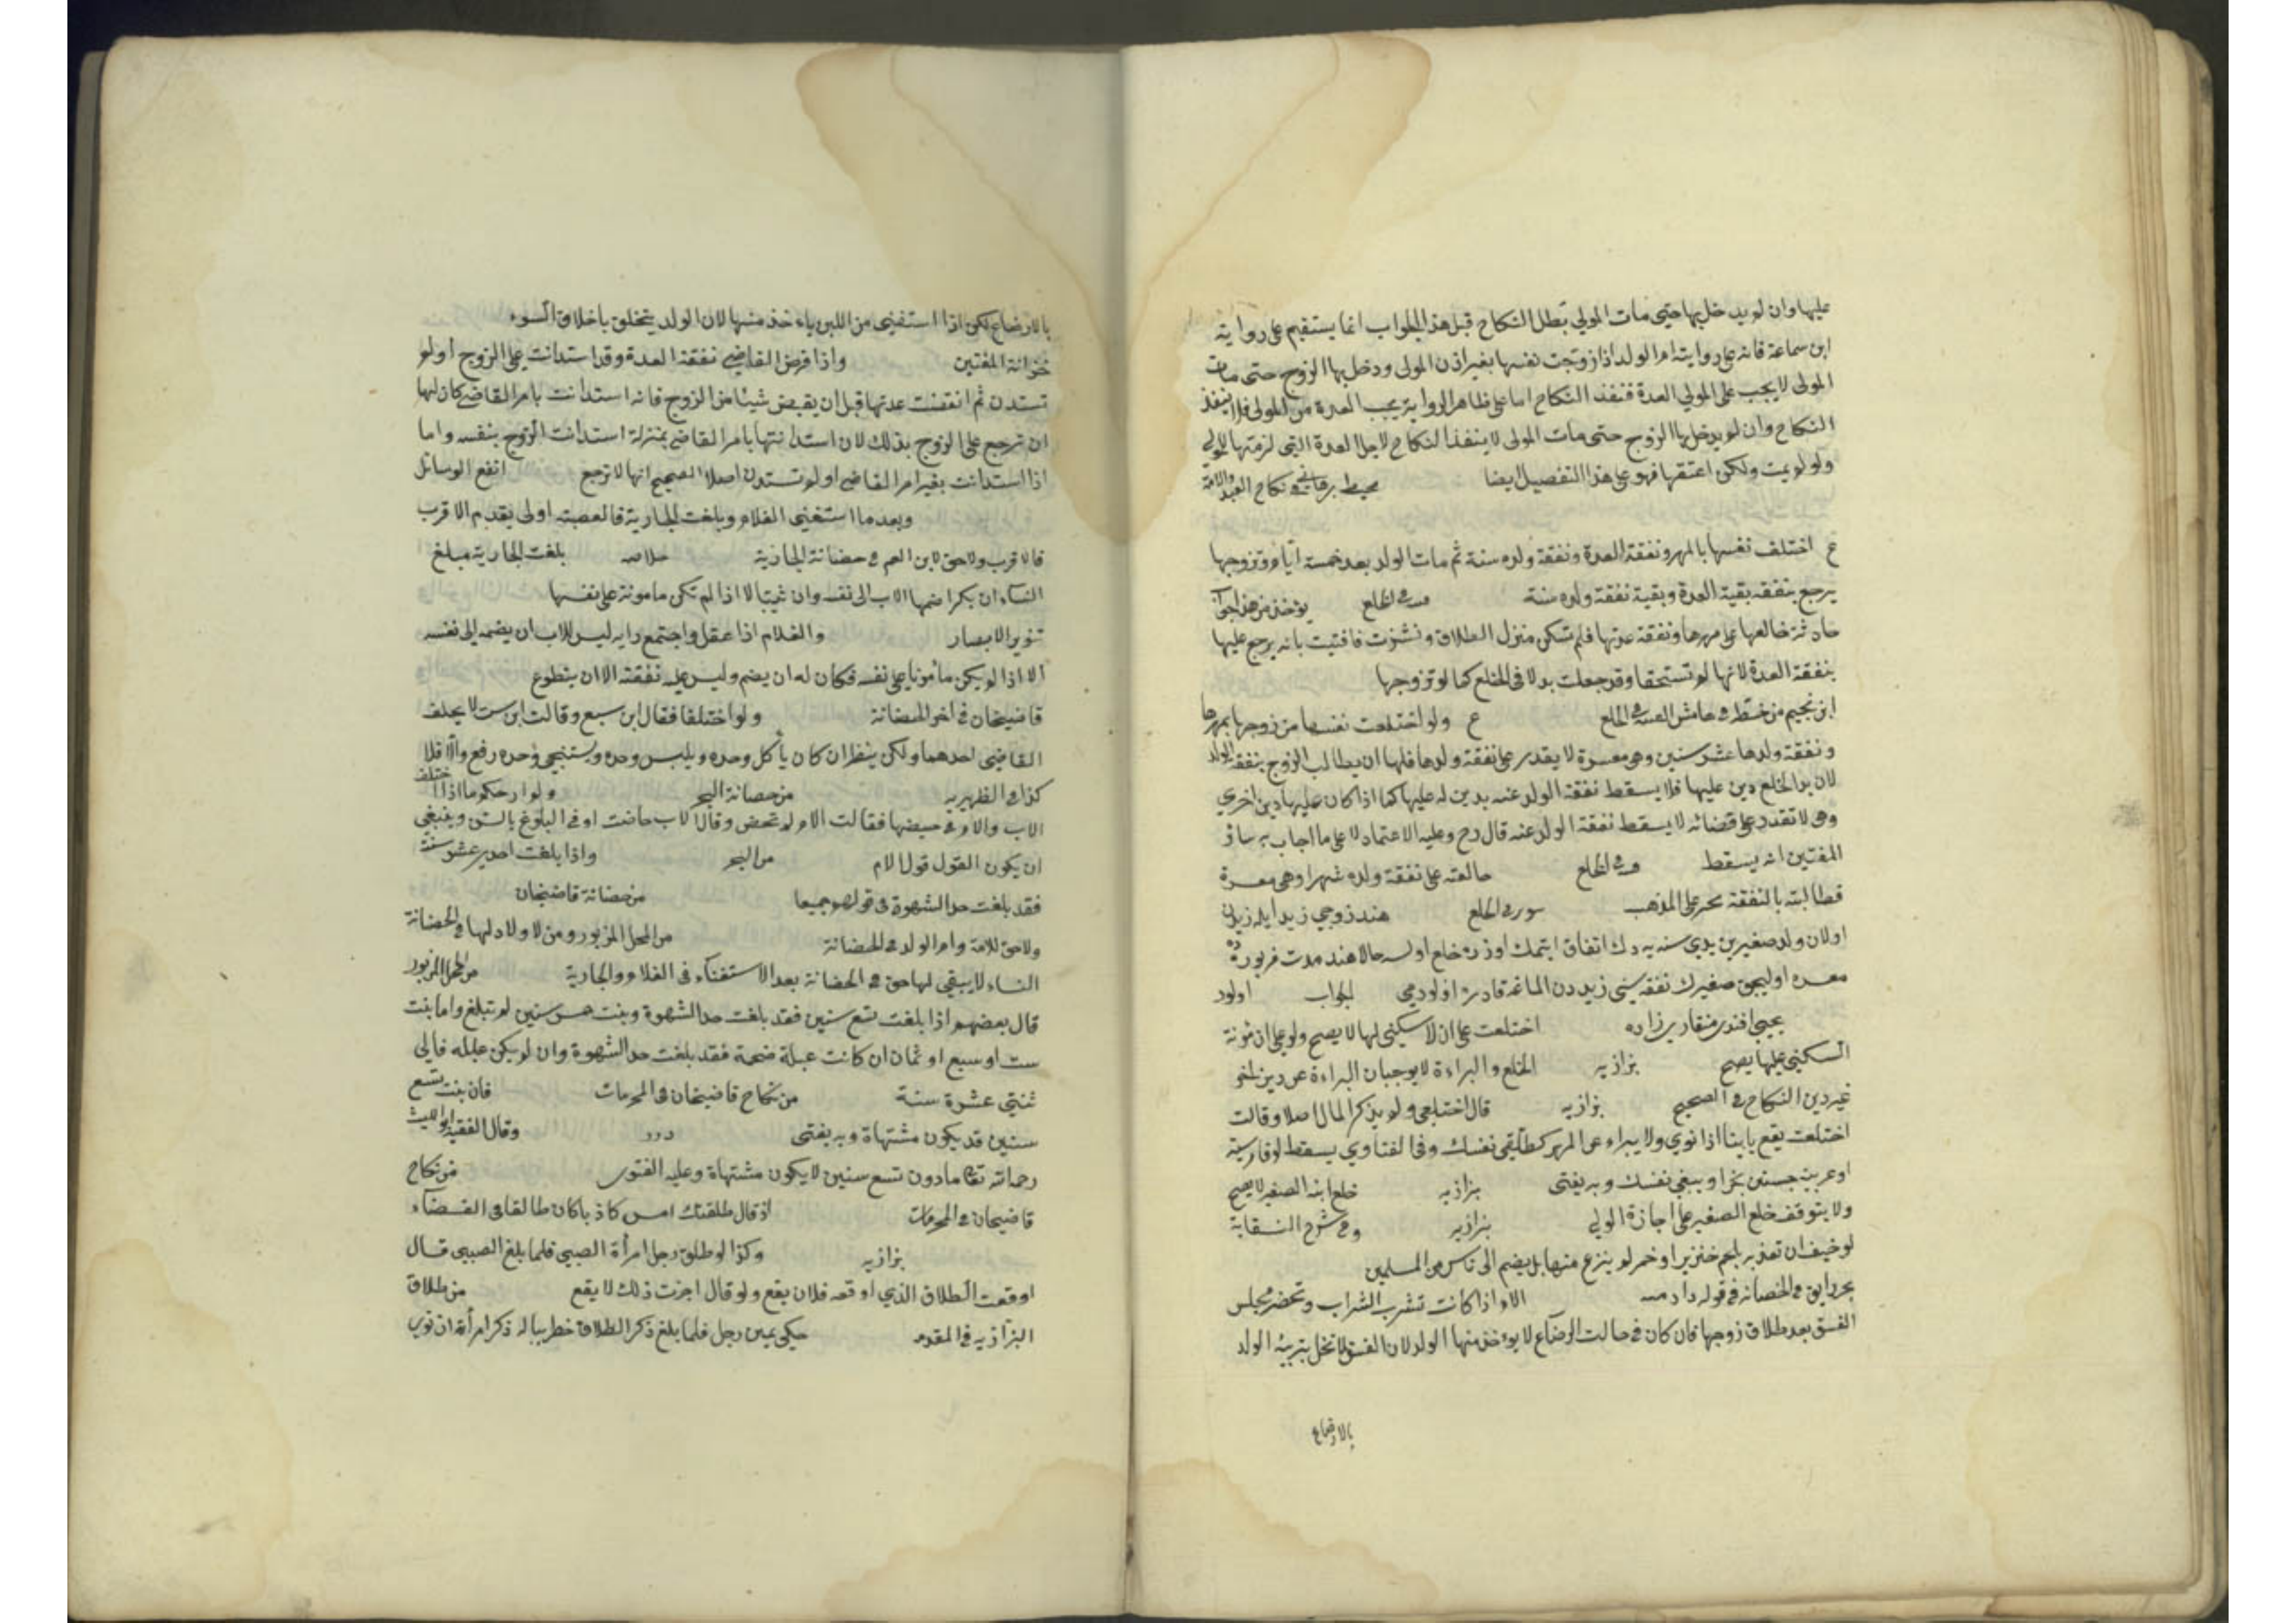 عليها وان لم يدخل بها حتى مات المولى بطل النكاح قبل هذا الجواب انما يستقيم على رواية
ابن سماعة فانه على روايته ام الولد اذا زوجت نفسها بغير اذن المولى ودخل بها الزوج حتى مات
المولى لا يجب على المولى العدة فنفذ النكاح اما على ظاهر الرواية يجب العدة من المولى فلا ينفذ
النكاح وان لم يدخل بها الزوج حتى مات المولى لا ينفذ النكاح لاجل العدة التي لزمتها للمولى
ولو لم يمت ولكن اعتقها فهو على هذا التفصيل ايضا محيط برهاني في نكاح العبد والامة
ع اختلف نفسها بالمهر ونفقة العدة ونفقة ولده سنة ثم مات الولد بعد خمسة ايام وتزوجها
يرجع بنفقة بقية العدة وبقية نفقة ولده سنة في الخلع يؤخذ من هذا جواب
حادثة خالعها على مهرها ونفقة عدتها فلم تسكن منزل الطلاق ونشزت فافتيت بانه يرجع عليها
بنفقة العدة لانها لم تستحقها وقد جعلت بدلا في الخلع كما لو تزوجها
ابن نجيم من خطه في هامش القنية في الخلع ع ولو اختلعت نفسها من زوجها بمهرها
ونفقة ولدها عشر سنين وهي معسرة لا يقدر على نفقة ولدها فلها ان يطالب الزوج بنفقة الولد
لان بدل الخلع دين عليها فلا يسقط نفقة الولد عنه بدين له عليها كما اذا كان عليها دين اخرى
وهي لا تقدر على قضائه لا يسقط نفقة الولد عنه قال رح وعليه الاعتماد لا على ما اجاب به سائر
المفتين انه يسقط في الخلع خالعته على نفقة ولده شهرا وهي معسرة
فطالبته بالنفقة يجبر على المذهب در في الخلع هند زوجي زيد ايله زيدن
اولان ولد صغيرين يدي سنه يه دك اتفاق ايتمك اوزره خلع اولسه حالا هند مدت مزبورده
معسره اوليجق صغيرك نفقه سنى زيددن المانه قادره اولورمي الجواب اولور
يحيى افندى منقاري زاده اختلعت على ان لا سكنى لها لا يصح ولو على ان مؤنة
السكنى عليها يصح بزازيه الخلع والبراءة لا يوجبان البراءة عن دين اخر
غير دين النكاح في الصحيح بزازيه قال اختلعي ولم يذكر المال اصلا وقالت
اختلعت يقع بائنا اذا نوى ولا يبراء عن المهر كطلقي نفسك وفي الفتاوي يسقط لو فارسية
او عربية نفسك وبه يفتى بزازيه خلع ابنه الصغير لا يصح
ولا يتوقف خلع الصغير على اجازة الولي بزازيه وفي شرح النقاية
لو خيف ان تغذيه بلحم خنزير او خمر لم ينزع منها بل يضم الى ناس من المسلمين
بحر رايق في الحضانه في قوله الام اذا كانت تشرب الشراب وتحضر مجلس
الفسق بعد طلاق زوجها فان كان في حالت الرضاع لا يؤخذ منها الولد لان الفسق لا تخل بتربية الولد
بالارضاع
بالارضاع لكن اذا استغنى من اللبن ياءخذ منها لان الولد يتخلق باخلاق السوء
خزانة المفتين واذا فرض القاضي نفقة العدة وقد استدانت على الزوج او لم
تستدن ثم انقضت عدتها قبل ان يقبض شيئا من الزوج فانه استدانت بامر القاضي كان لها
ان ترجع على الزوج بذلك لان استدانتها بامر القاضي بمنزلة استدانت الزوج بنفسه واما
اذا استدانت بغير امر القاضي او لم تستدن اصلا الصحيح انها لا ترجع انفع الوسائل
وبعدما استغنى الغلام وبلغت الجارية فالعصبة اولى يقدم الاقرب
فالاقرب ولا حق لابن العم في حضانة الجارية خلاصه بلغت الجارية مبلغ
النساء ان بكرا ضمها الاب الى نفسه وان ثيبا لا اذا لم تكن مامونة على نفسها
تنوير الابصار والغلام اذا عقل واجتمع رايه ليس للاب ان يضمه الى نفسه
الا اذا لم يكن مأمونا على نفسه فكان له ان يضم وليس عليه نفقته الا ان يتطوع
قاضيخان في اخر الحضانة ولو اختلفا فقال ابن سبع وقالت ابن ست لا يحلف
القاضي احدهما ولكن ينظر ان كان يأكل وحده ويلبس وحده ويستنجي وحده رفع والا فلا
كذا في الظهيريه من حضانة البحر ولم ار حكم ما اذا اختلف
الاب والام في حيضها فقالت الام لم تحض وقال الاب حاضت او في البلوغ بالسن وينبغي
ان يكون القول قول الام من البحر واذا بلغت احدى عشر سنة
فقد بلغت حد الشهوة في قولهم جميعا من حضانة قاضيخان
ولا حق للامة وام الولد في الحضانة من المحل المزبور ومن لا ولاد لها في الحضانة
النساء لا يبقى لها حق في الحضانة بعد الاستغناء في الغلام والجارية من المحل المزبور
قال بعضهم اذا بلغت تسع سنين فقد بلغت حد الشهوة وبنت خمس سنين لم تبلغ واما بنت
ست او سبع او ثمان ان كانت عبلة ضخمة فقد بلغت حد الشهوة وان لم يكن عبلة فالى
ثنتى عشرة سنة من نكاح قاضيخان في المحرمات فان بنت تسع
سنين قد يكون مشتهاة وبه يفتى درر وقال الفقيه ابو الليث
رحمه الله تعا مادون تسع سنين لا يكون مشتهاة وعليه الفتوى من نكاح
قاضيخان في المحرمات اذ قال طلقتك امس كاذبا كان طالقا في القضاء
بزازيه وكذا لو طلق رجل امرأة الصبي فلما بلغ الصبي قال
اوقعت الطلاق الذي اوقعه فلان يقع ولو قال اجزت ذلك لا يقع من طلاق
البزازيه في المقدمه حكي يمين رجل فلما بلغ ذكر الطلاق خطر بباله ذكر امرأته ان نوى